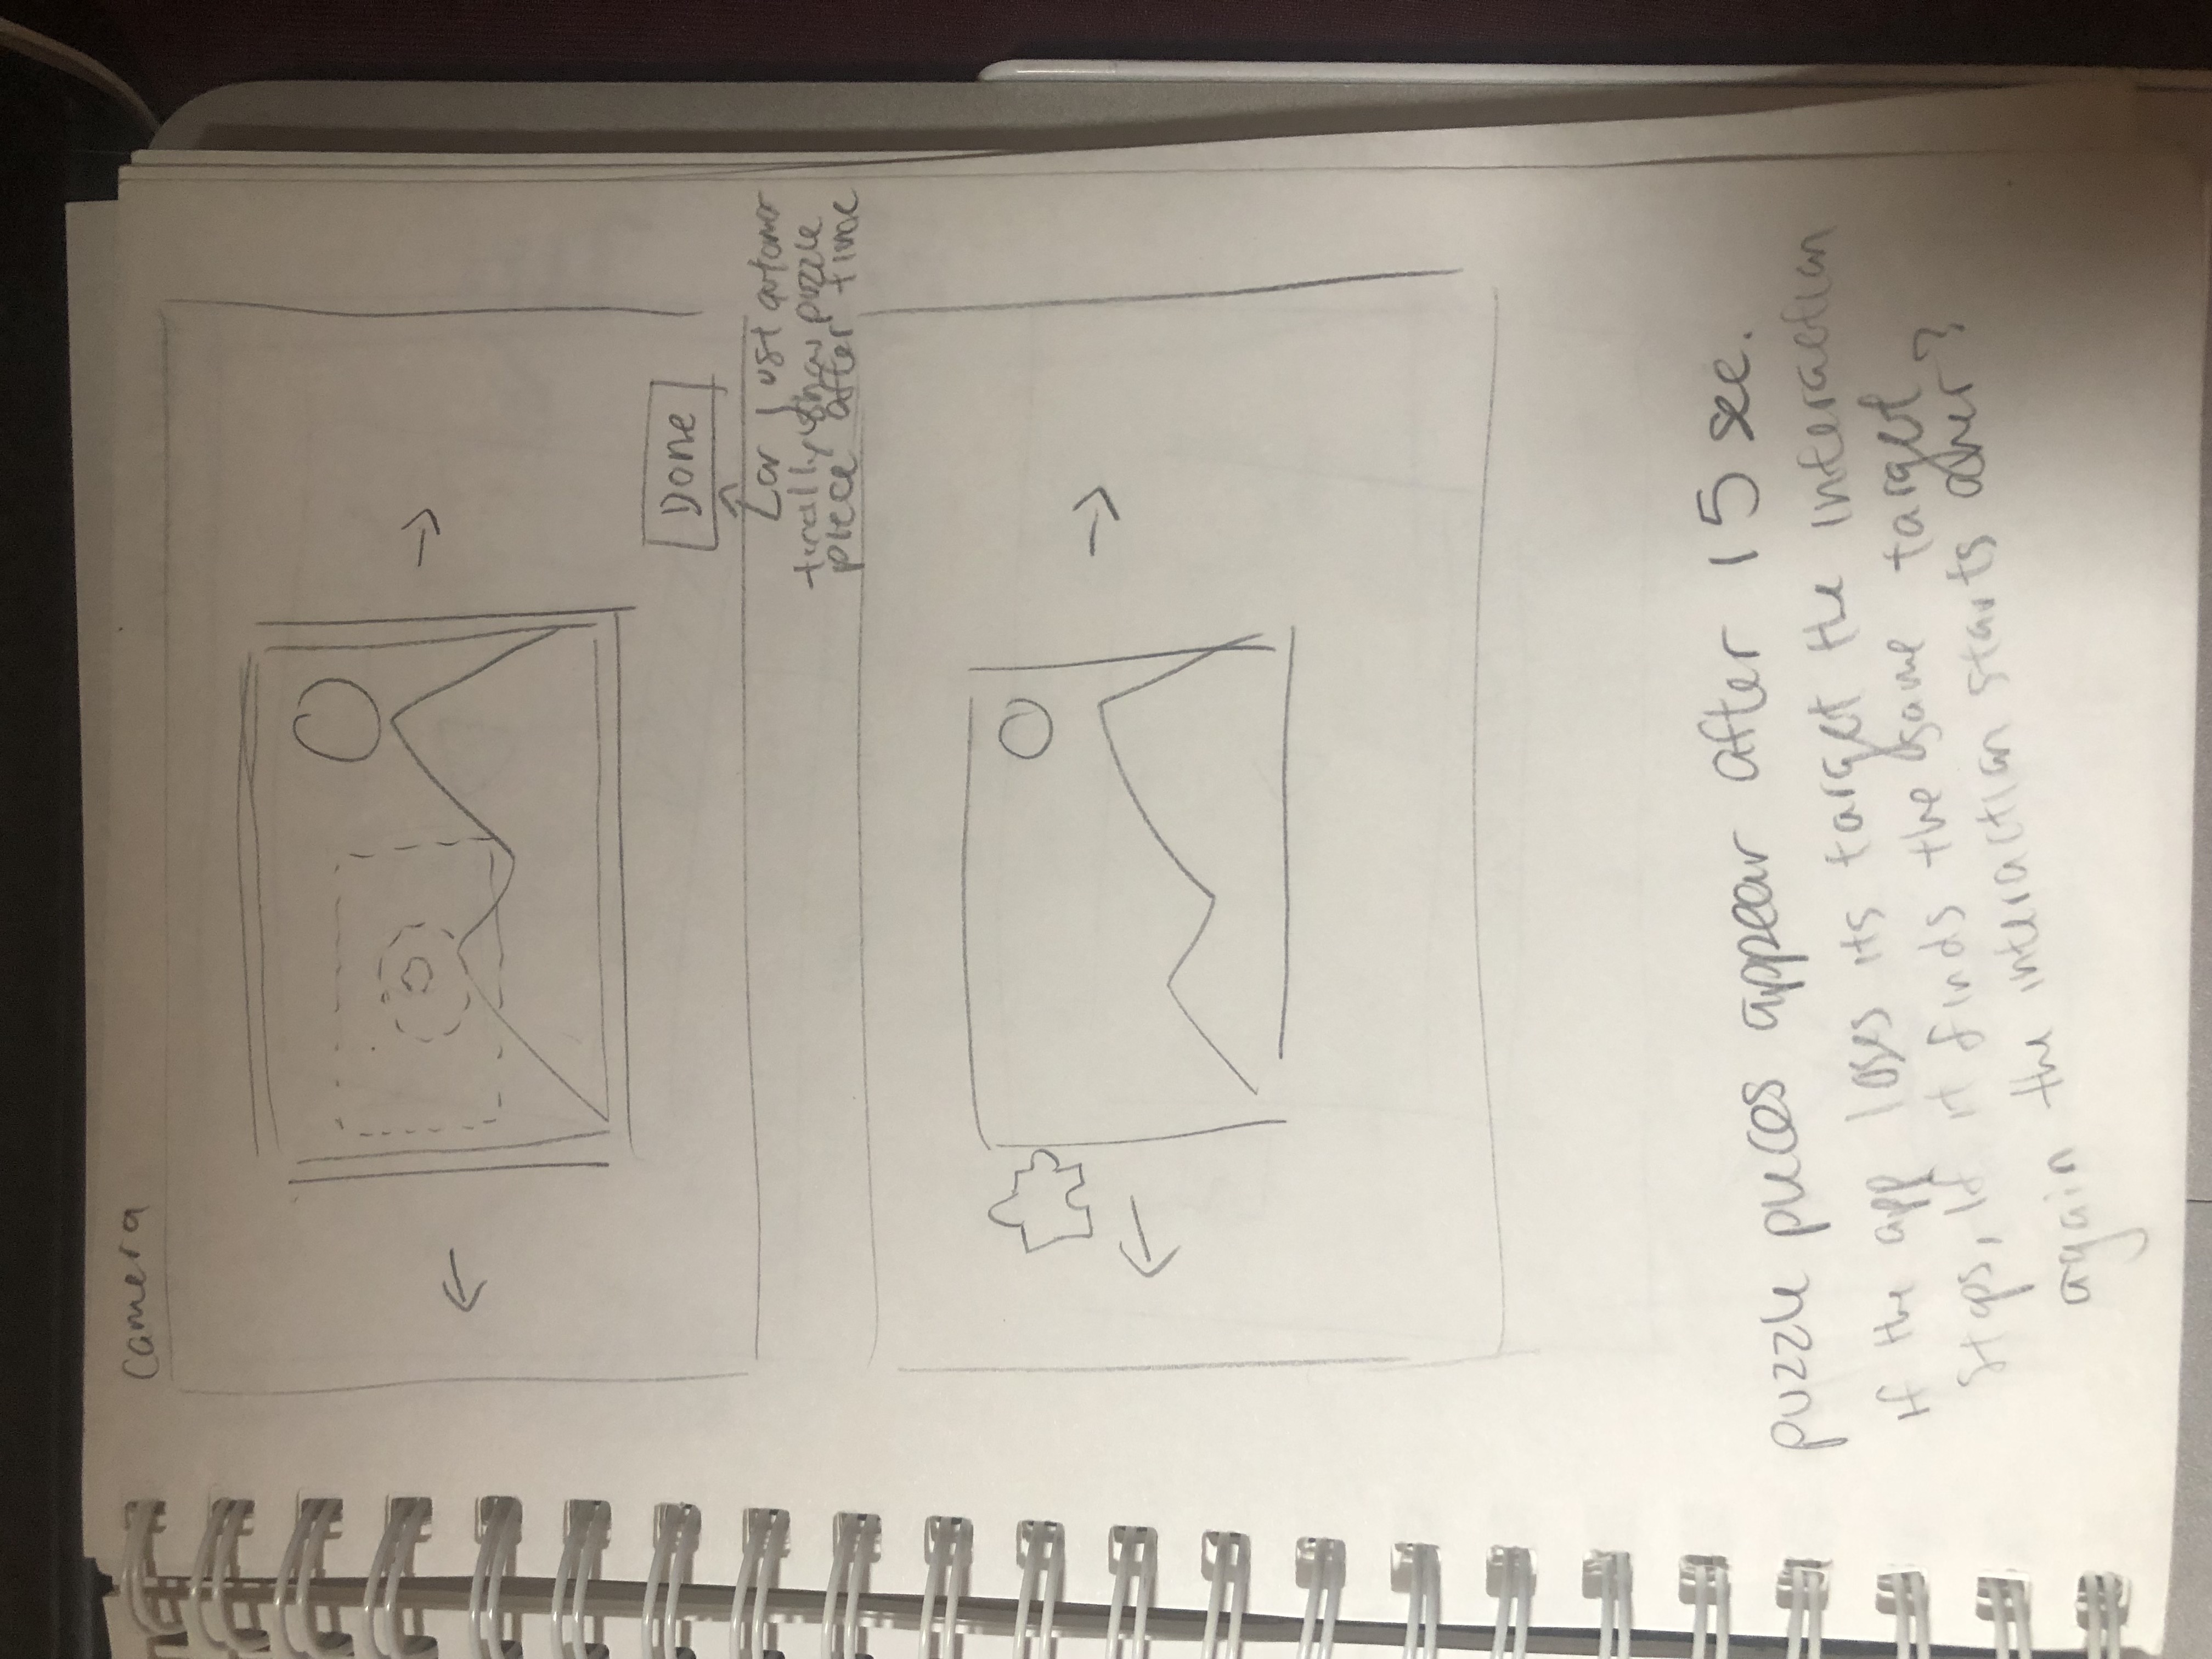 camera
Done
or just automa
tically show puzzle
piece after time
puzzle pieces appear after 15 sec.
if the app loses its target the interaction
stops, if it finds the same target
again the interaction starts over?